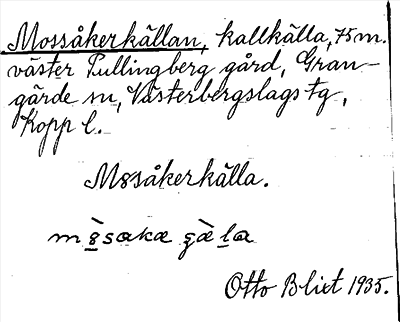 Mossåkerkällan, kallkälla, 75 m.
väster Pullingberg gård, Gran-
gärde sn, Västerbergslags tg,
Kopp l.
M8såkerkälla.
Otto Blixt 1935.